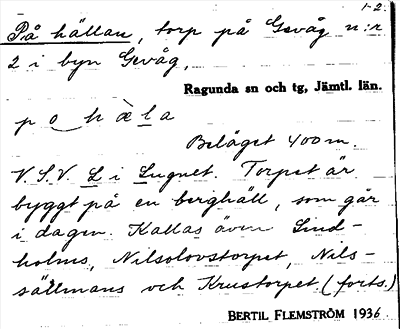 1-2.
På hällan, torp på Gevåg n:r
2 i byn Gevåg,
Ragunda sn och tg, Jämtl. län.
po hàla
Beläget 400 m.
V.S.V. L i Lugnet. Torpet är
byggt på en berghäll, som går
i dagen. Kallas även Lind-
holms, Nilsolovstorpet, Nils-
sällmans och Krustorpet. (forts.)
BERTIL FLEMSTRÖM 1936